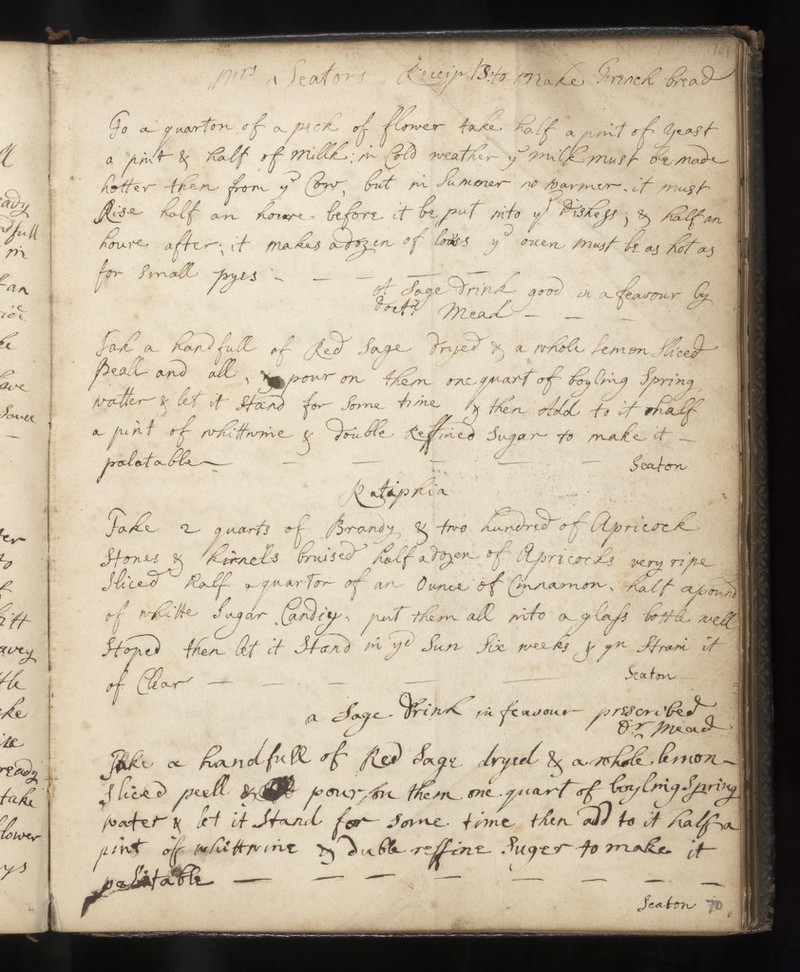 101
Mrs Seatons Receipts to make French bread
To a quarton of a peck of flower take half a pint of yeast
a pint & half of millk: in Cold weather ye milk must be made
hotter then from ye Cow, but in Summer no warmer. it must
Rise half an houre before it be put into ye Dishess, & half an
houre after; it makes a dozen of loves ye ouen must be as hot as
for Small pyes
A Sage Drink good in a feavour by
Doctr Mead
Take a handfull of Red Sage Dryed & a whole lemon Sliced
Peall and all, & pour on them one quart of boyling Spring
watter & let it Stand for Some time & then Add to it half
a pint of whittwine & Double Reffined Sugar to make it
palatable
Seaton
Ratiphia
Take 2 quarts of Brandy & two hundred of Apricock
Stones & kirnells bruised half a dozen of Apricocks very ripe
Sliced Half a quarter of an Ounce of Cinnamon. half a pound
of whitte Sugar Candiy. put them all into a glass bottle well
Stoped then let it Stand in ye Sun Six weeks & yn Strain it
of Clear
Seaton
a Sage Drink in feavour prescribed
Dr Mead
Take a handfull of Red Sage dryed & a whole lemon
Sliced peell & pour on them one quart of boylingSpring
water & let it Stand for Some time then add to it half a
pint of whittwine & Duble reffine Suger to make it
palitable
Seaton 70